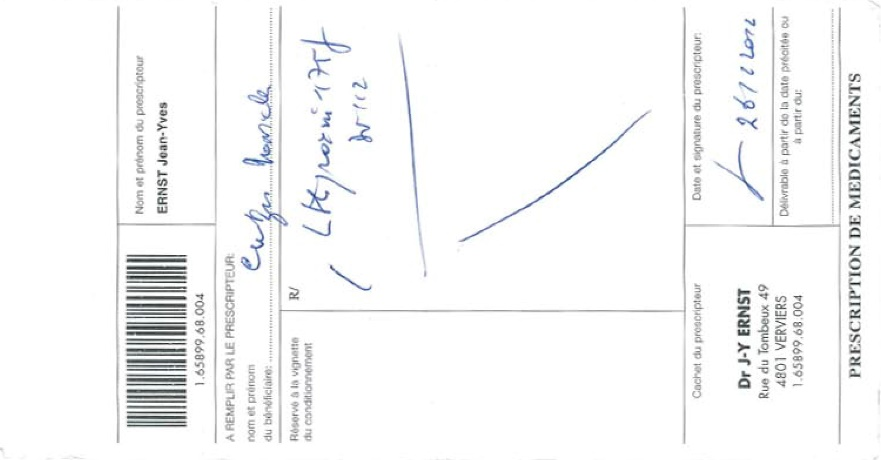 Nom et prénom du prescripteur
ERNST Jean-Yves
1.65899.68.004
A REMPLIR PAR LE PRESCRIPTEUR:
nom et prénom
du bénéficiaire:
Réservé à la vignette
du conditionnement
R/
Cachet du prescripteur
Dr J-Y ERNST
Rue du Tombeux 49
4801 VERVIERS
1.65899.68.004
Date et signature du prescripteur:
Délivrable à partir de la date précitée ou
à partir du:
PRESCRIPTION DE MEDICAMENTS